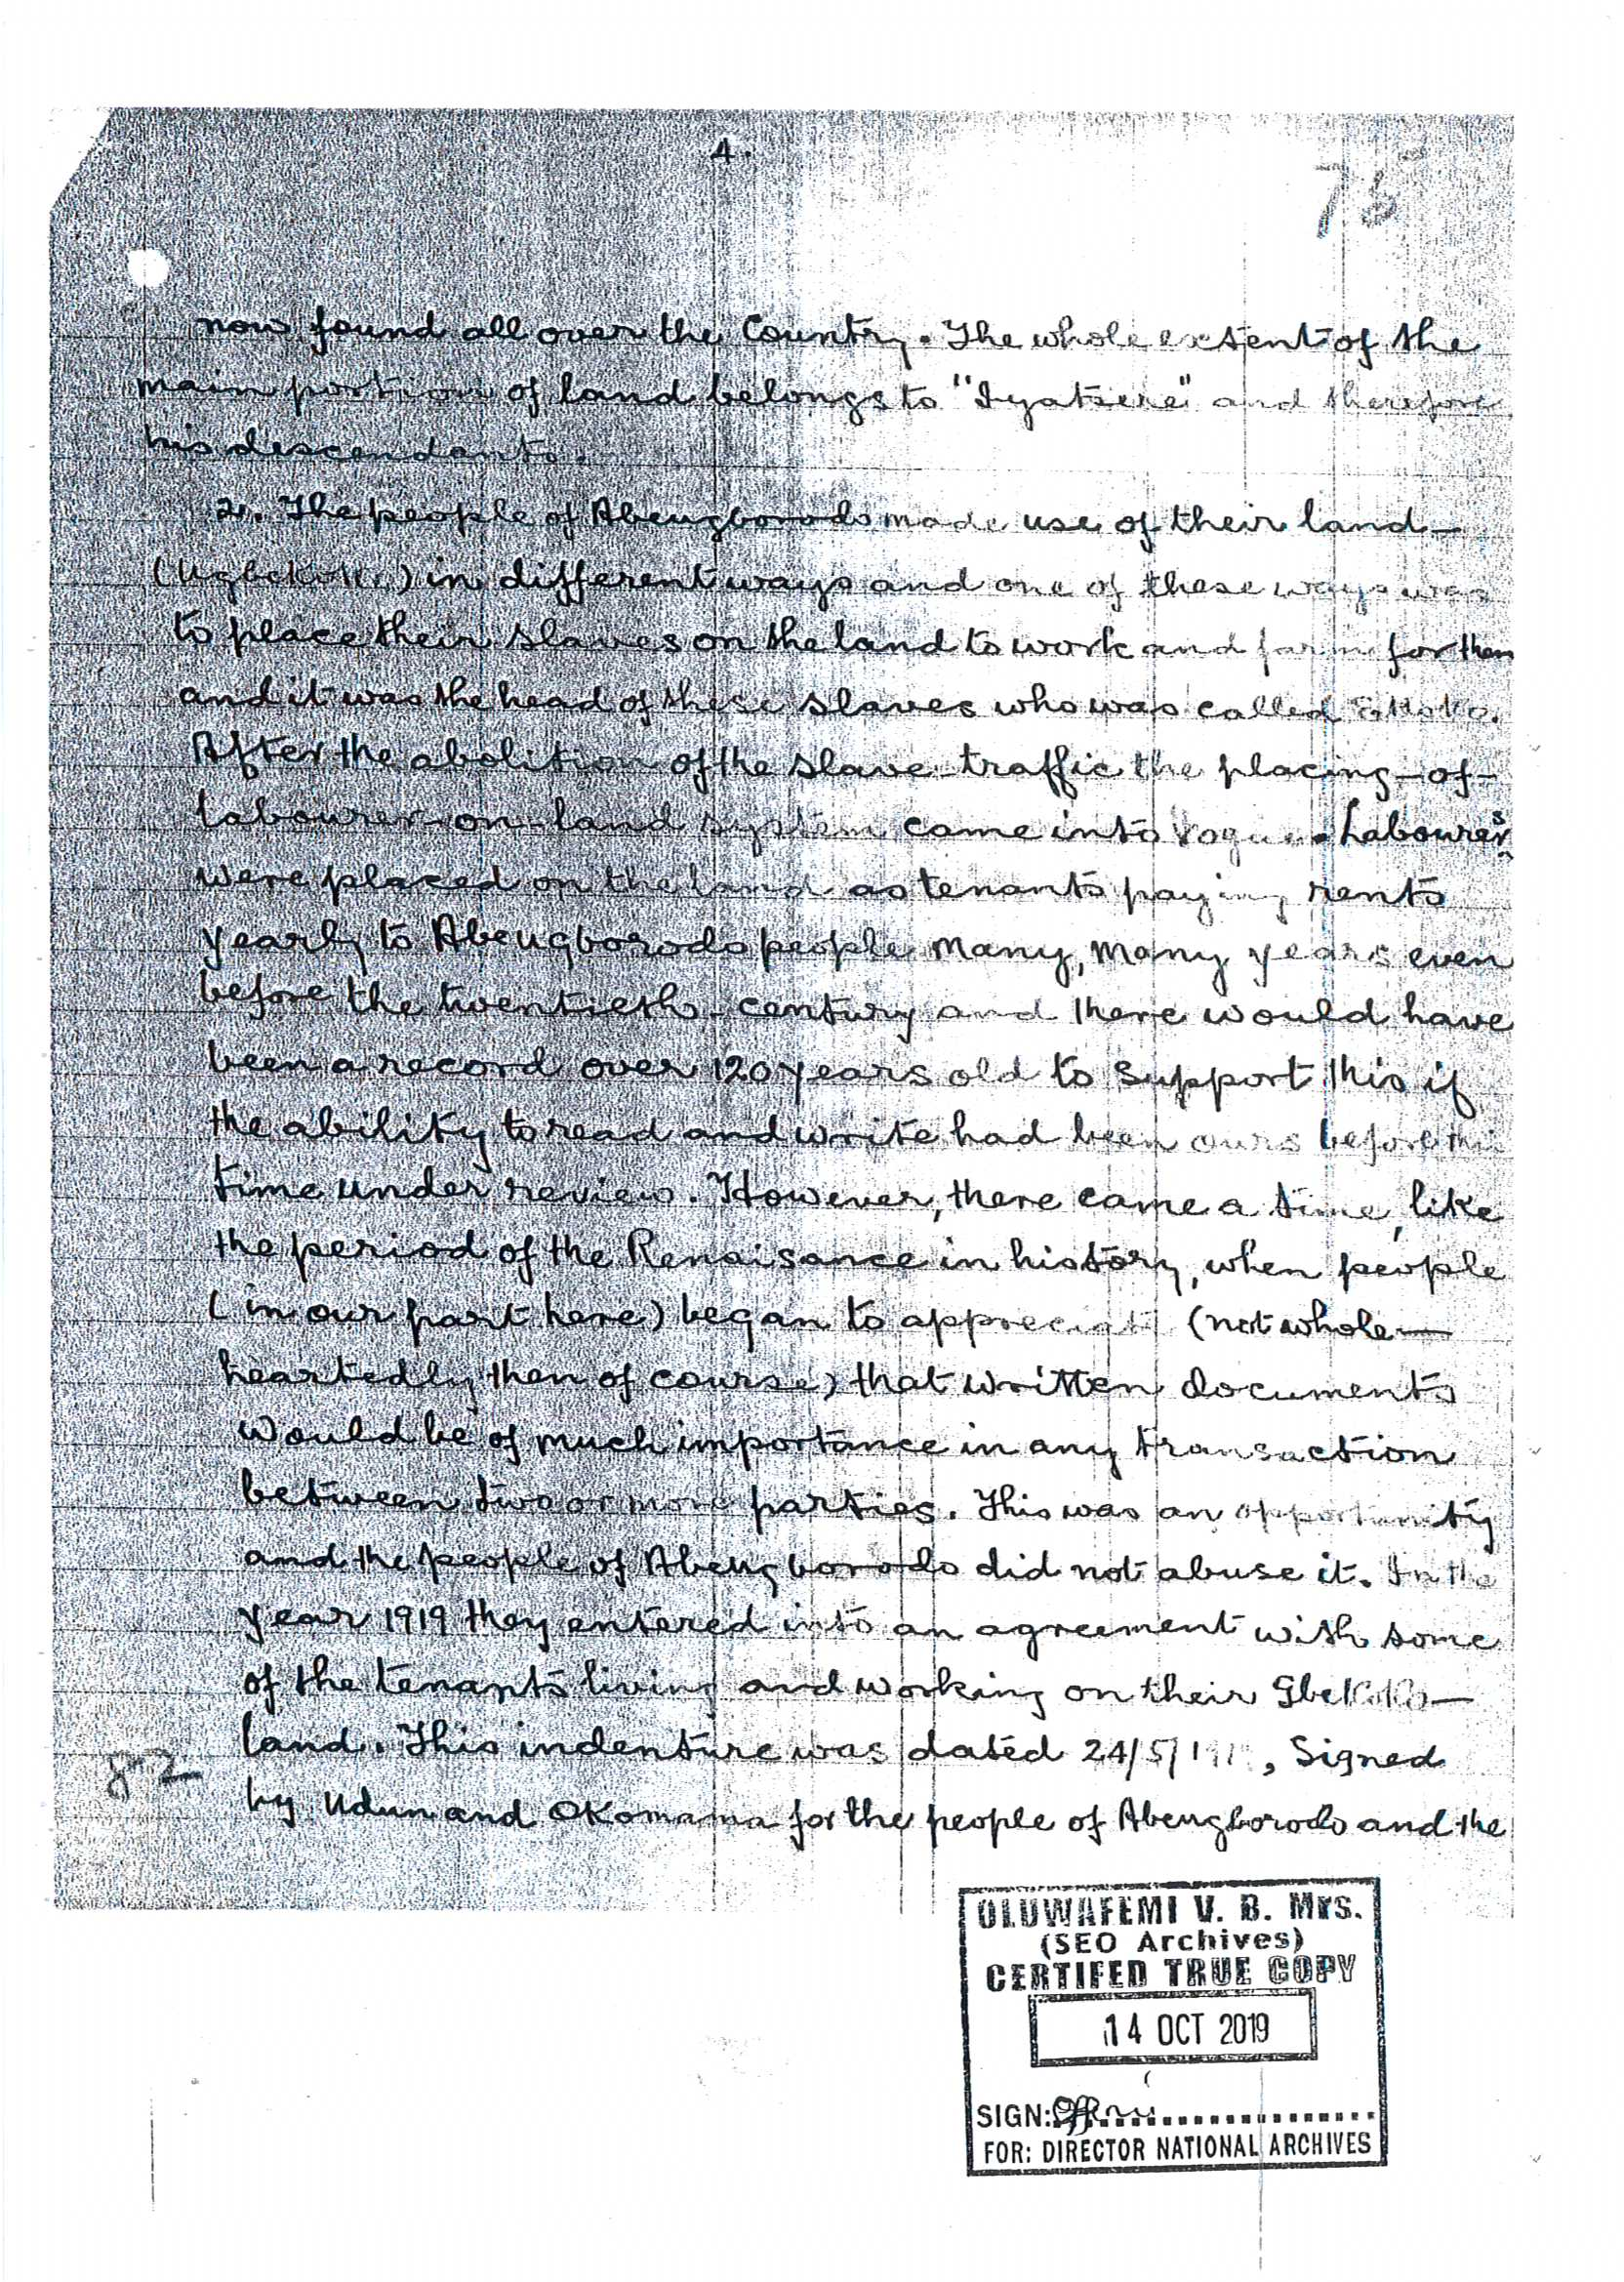 4.
73
now found all over the Country. The whole extent of the
main portion of land belongs to "Iyatsere" and therefore
his descendants.
2. The people of Abeugborodo made use of their land-
(Ugbekoko) in different ways and one of these ways was
to place their slaves on the land to work and farm for them
and it was the head of these slaves who was called
After the abolition of the slave-traffic the placing-of-
labourer-on-land system came into vogue. Labourers
were placed on the land as tenants paying rents
yearly to Abeugborodo people many, many years even
before the twentieth-century and there would have
been a record over 120 years old to support this if
the ability to read and write had been ours before this
time under review. However, there came a time, like
the period of the Renaisance in history, when people
(in our part here) began to appreciate (not whole-
heartedly then of course) that written documents
would be of much importance in any transaction
between two or more parties. This was an opportunity
and the people of Abeugborodo did not abuse it. In the
year 1919 they entered into an agreement with some
of the tenants living and working on their Gbekoko-
land. This indenture was dated 24/5/191, Signed
by Udum and Okomama for the people of Abeugborodo and the
OLUWAFEMI V. B. Mrs.
(SEO Archives)
CERTIFED TRUE COPY
14 OCT 2019
SIGN:
FOR: DIRECTOR NATIONAL ARCHIVES